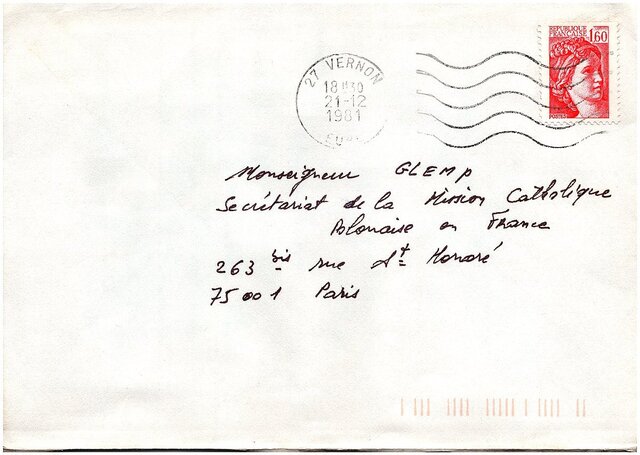 REPUBLIQUE
FRANCAISE
1,60
POSTES
27 VERNON
18H30
21-12
1981
EURE
Monseigneur GLEMP
Secrétariat de la Mission Catholique
Polonaise en France
263 bis rue St Honoré
75001 Paris